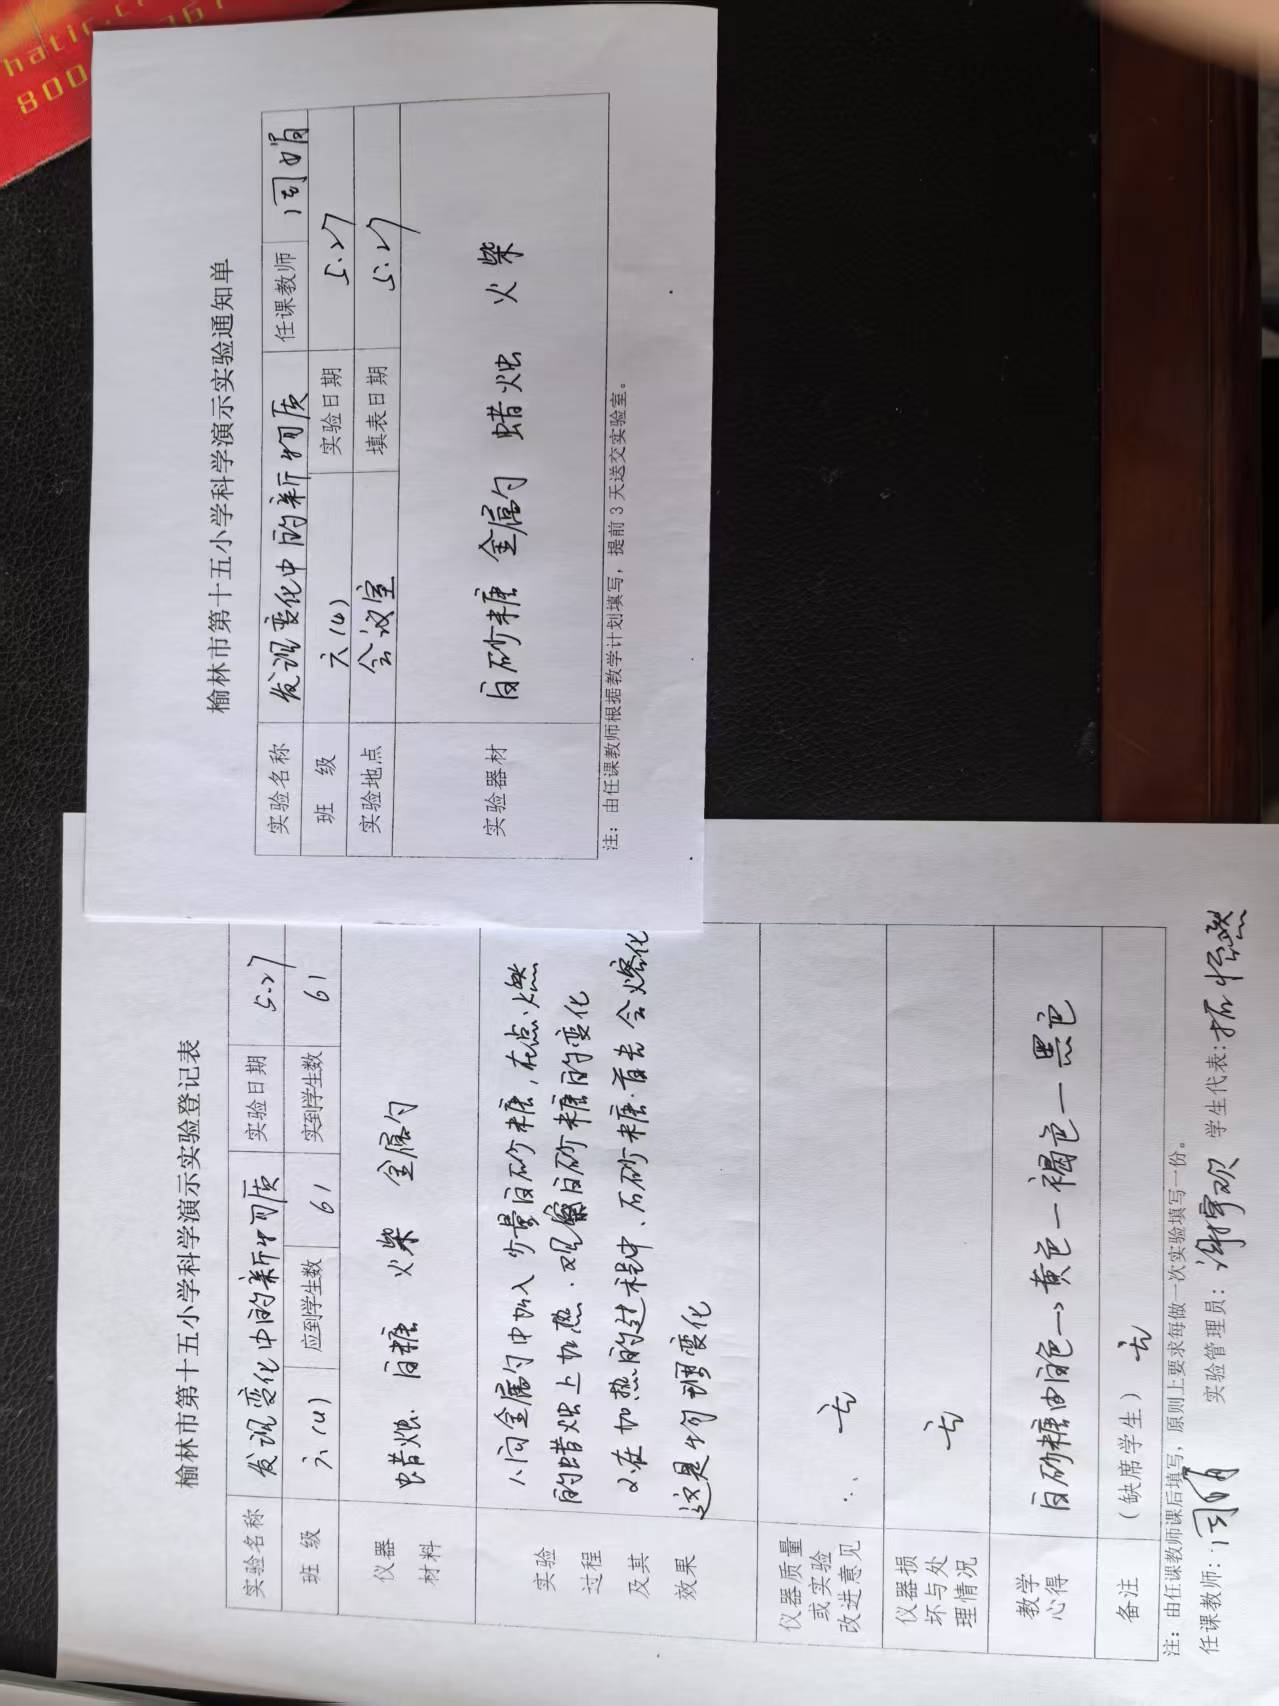 榆林市第十五小学科学演示实验通知单
实验名称 发现变化中的新物质 任课教师 闫娟
班 级 六(4) 实验日期 5.27
实验地点 会议室 填表日期 5.27
实验器材 白砂糖 金属勺 蜡烛 火柴
注：由任课教师根据教学计划填写，提前3天送交实验室。
榆林市第十五小学科学演示实验登记表
实验名称 发现变化中的新物质 实验日期 5.27
班 级 六(4) 应到学生数 61 实到学生数 61
仪器材料 蜡烛、白糖 火柴 金属勺
实验过程及其效果
1、向金属勺中加入少量白砂糖，在点燃
的蜡烛上加热、观察白砂糖的变化
2、在加热的过程中、白砂糖首先会熔化
这是物理变化
仪器质量或实验改进意见 无
仪器损坏与处理情况 无
教学心得 白砂糖由白色→黄色—褐色—黑色
备注 （缺席学生） 无
注：由任课教师课后填写，原则上要求每做一次实验填写一份。
任课教师：闫娟 实验管理员： 学生代表：